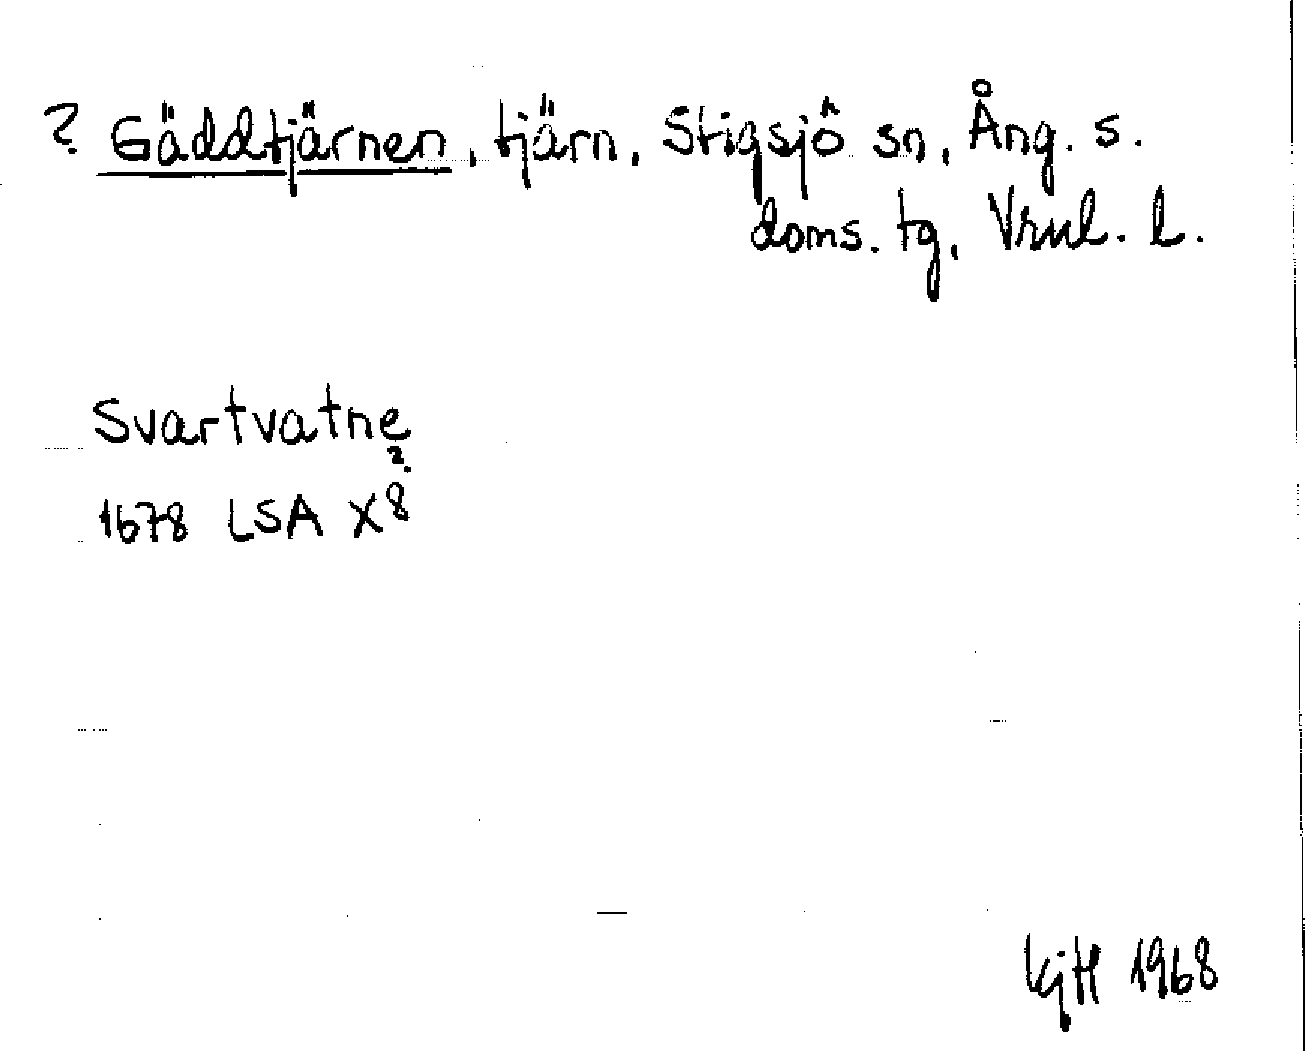 ? Gäddtjärnen, tjärn, Stigsjö sn, Ång. s.
doms. tg, Vrnl. l.
Svartvatne
?
1678 LSA X8
KjH 1968